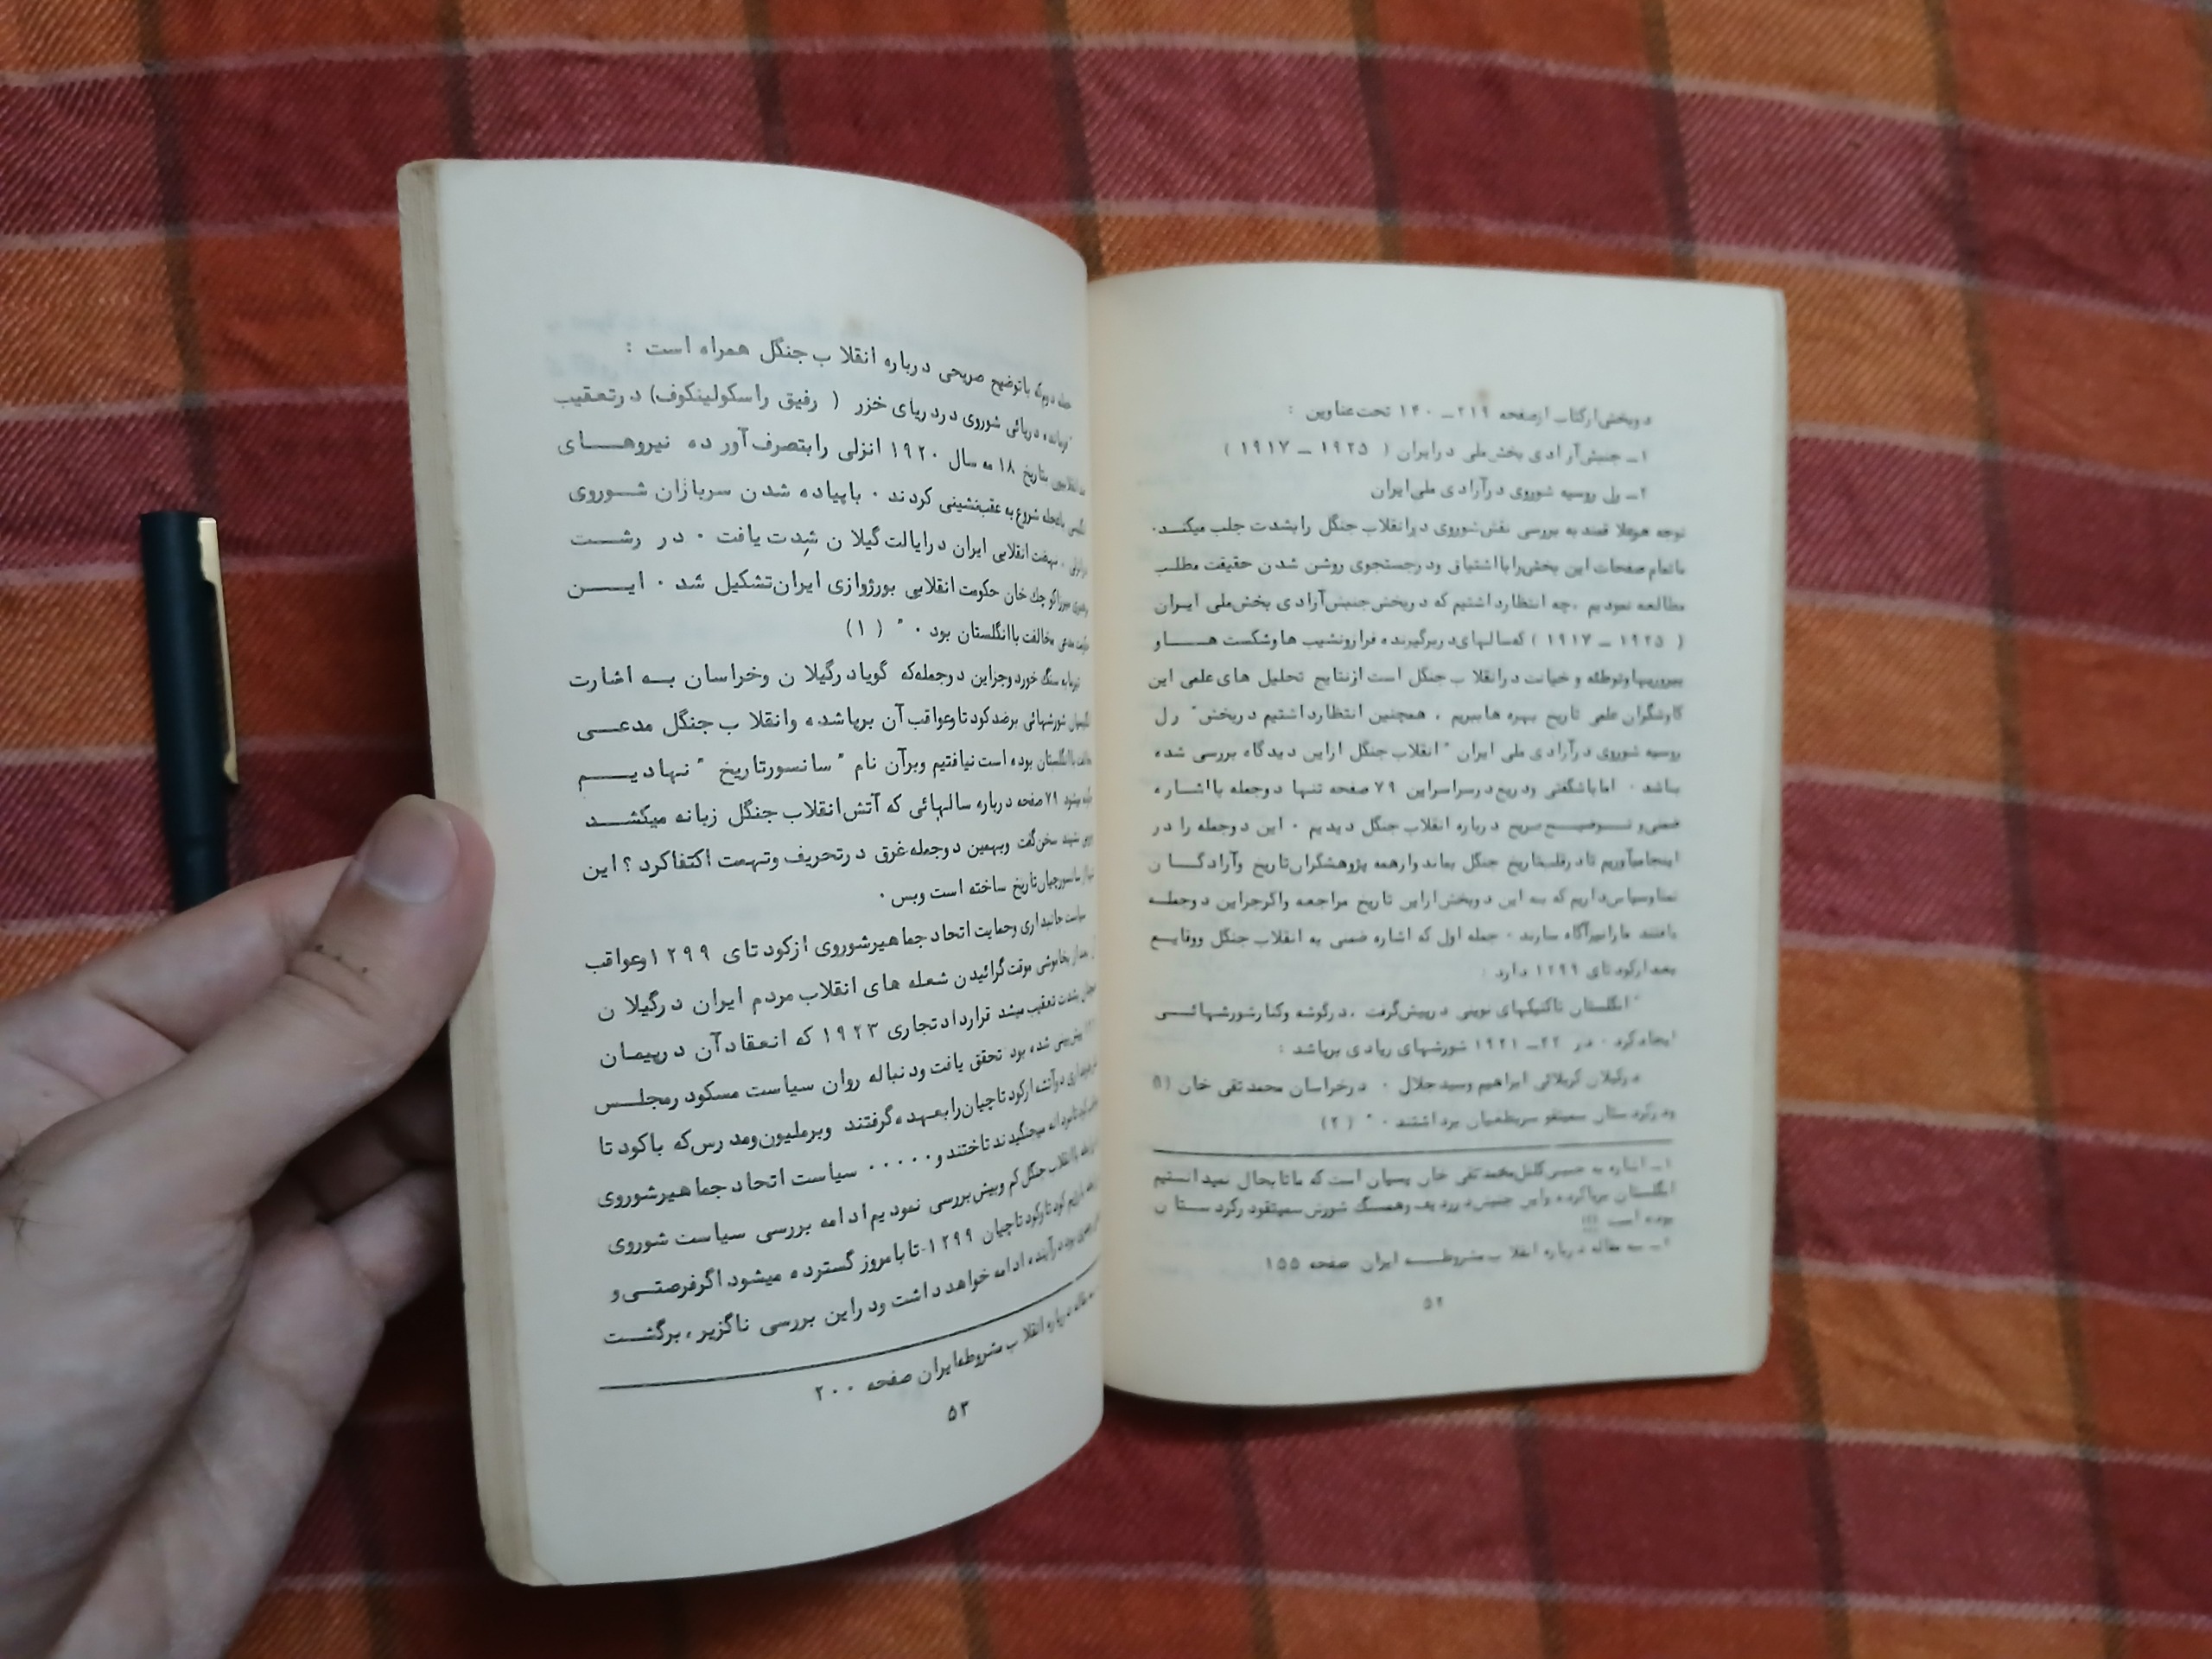 دوبخش‌ازکتاب ازصفحه ۲۱۹ــ ۱۴۰ تحت‌عناوین :
۱ــ جنبش‌آزادی بخش‌ملی درایران ( ۱۹۲۵ ــ ۱۹۱۷ )
۲ــ رل روسیه شوروی درآزادی ملی‌ایران
توجه هرعلاقمند به بررسی نقش‌شوروی درانقلاب جنگل رابشدت جلب میکند.
ماتمام صفحات این بخش‌رابااشتیاق ودرجستجوی روشن شدن حقیقت مطلب
مطالعه نمودیم .چه انتظارداشتیم که دربخش‌جنبش‌آزادی بخش‌ملی ایران
( ۱۹۲۵ ــ ۱۹۱۷ ) که‌سالهای‌دربرگیرنده فرازونشیب هاوشکست هــاو
پیروزیهاوتوطئه و خیانت درانقلاب جنگل است ازنتایج تحلیل های‌علمی این
کاوشگران علمی تاریخ بهره هاببریم . همچنین انتظارداشتیم دربخش" رل
روسیه شوروی درآزادی ملی ایران "انقلاب جنگل ازاین دیدگاه بررسی شده
باشد . اماباشگفتی ودریغ‌درسراسراین ۷۹ صفحه تنها دوجمله بااشاره
ضمنی‌و تــوضیــح صریح درباره انقلاب جنگل دیدیم . این دوجمله را در
اینجامیآوریم تادرقلب‌تاریخ جنگل بماند وازهمه پژوهشگران‌تاریخ وآزادگــان
تمناوسپاس‌داریم که به این دوبخش‌ازاین تاریخ مراجعه واگرجزاین دوجملــه
یافتند مارانیزآگاه سازند . جمله اول که اشاره ضمنی به انقلاب جنگل ووقایــع
بعدازکودتای ۱۲۹۹ دارد :
"انگلستان تاکتیکهای نوینی درپیش‌گرفت .درگوشه وکنارشورشهائــی
ایجادکرد . در ۲۲ــ ۱۹۲۱ شورشهای زیادی برپاشد :
درگیلان کربلائی ابراهیم وسیدجلال . درخراسان محمدتقی خان (۱)
ودرکردستان سمیتقو سربطغیان برداشتند . " (۲)
۱ــ اشاره به جنبش‌کلنل‌محمدتقی خان پسیان است که ماتابحال نمیدانستیم
انگلستان برپاکرده واین جنبش‌درردیف وهمسنگ شورش‌سمیتقودرکردستان
بوده است !!!
۲ــ سه مقاله درباره انقلاب مشروطــه ایران صفحه ۱۵۵
۵۲
جمله دوم‌که باتوضیح صریحی درباره انقلاب جنگل همراه است :
"فرمانده دریائی شوروی دردریای خزر ( رفیق راسکولینکوف) درتعقیب
ضدانقلابیون بتاریخ ۱۸ مه سال ۱۹۲۰ انزلی رابتصرف‌آورده نیروهــای
انگلیس بامحله شروع به عقب‌نشینی کردند . باپیاده شدن سربازان شــوروی
درانزلی . نهضت انقلابی ایران درایالت‌گیلان شدت یافت . در رشــت
میرزاکوچک خان حکومت انقلابی بورژوازی ایران‌تشکیل شد . ایــن
حکومت مدعی مخالفت باانگلستان بود . " (۱)
تیرمابه سنگ خوردوجزاین دوجمله‌که گویادرگیلان وخراسان بــه اشارت
انگلیسیان شورشهائی برضدکودتاوعواقب آن برپاشده وانقلاب جنگل مدعــی
مخالفت باانگلستان بوده است نیافتیم وبرآن نام "سانسورتاریخ " نهادیــم
چگونه میشود ۷۹ صفحه درباره سالهائی که آتش‌انقلاب جنگل زبانه میکشــد
سخن‌گفت وبهمین دوجمله‌غرق درتحریف وتهمت اکتفاکرد ؟ این
تنها ازسانسورچیان‌تاریخ ساخته است وبس .
سیاست جانبداری وحمایت اتحادجماهیرشوروی ازکودتای ۱۲۹۹وعواقب
آن بعدازبخاموشی موقت‌گرائیدن شعله های انقلاب مردم ایران درگیلان
همچنان بشدت تعقیب میشد قراردادتجاری ۱۹۲۳ که انعقادآن درپیمان
پیش‌بینی شده بود تحقق یافت ودنباله روان سیاست مسکودرمجلــس
دوآتشه ازکودتاچیان‌رابعهده‌گرفتند وبرملیون‌ومدرس‌که باکودتا
میجنگیدند تاختند و..... سیاست اتحادجماهیرشوروی
باانقلاب جنگل‌کم وبیش‌بررسی نمودیم‌ادامه بررسی سیاست شوروی
کودتاوکودتاچیان ۱۲۹۹ــ‌تابامروز گسترده میشود.اگرفرصتــی‌و
بود درآینده ادامه خواهدداشت ودراین بررسی ناگزیر، برگشــت
مقاله درباره انقلاب مشروطه‌ایران صفحه ۲۰۰
۵۳